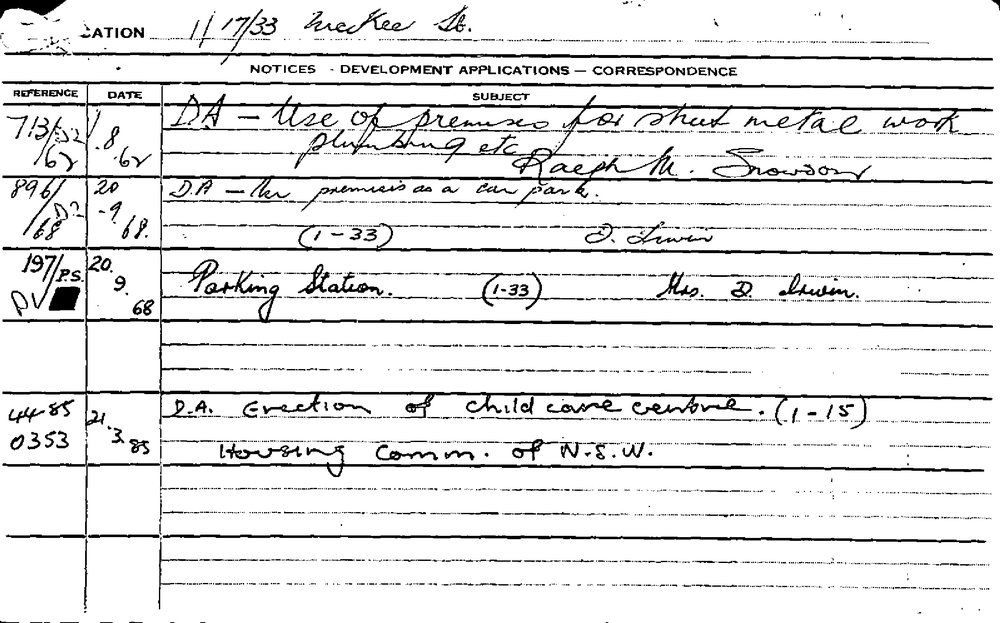 CATION 1/17/33 McKee St.
NOTICES - DEVELOPMENT APPLICATIONS — CORRESPONDENCE
REFERENCE DATE SUBJECT
713/D2/62 1.8.62 D.A — Use of premises for sheet metal work
plumbing etc
Ralph M. Snowdon
896/D2/68 20-9.68. D.A — Use premises as a car park.
(1-33) D. Irwin
197/P.S. 20.9.68 Parking Station. (1-33) Mrs. D. Irwin.
DV
44-85 0353 21.3.85 D.A. Erection of child care centre. (1-15)
Housing Comm. of N.S.W.